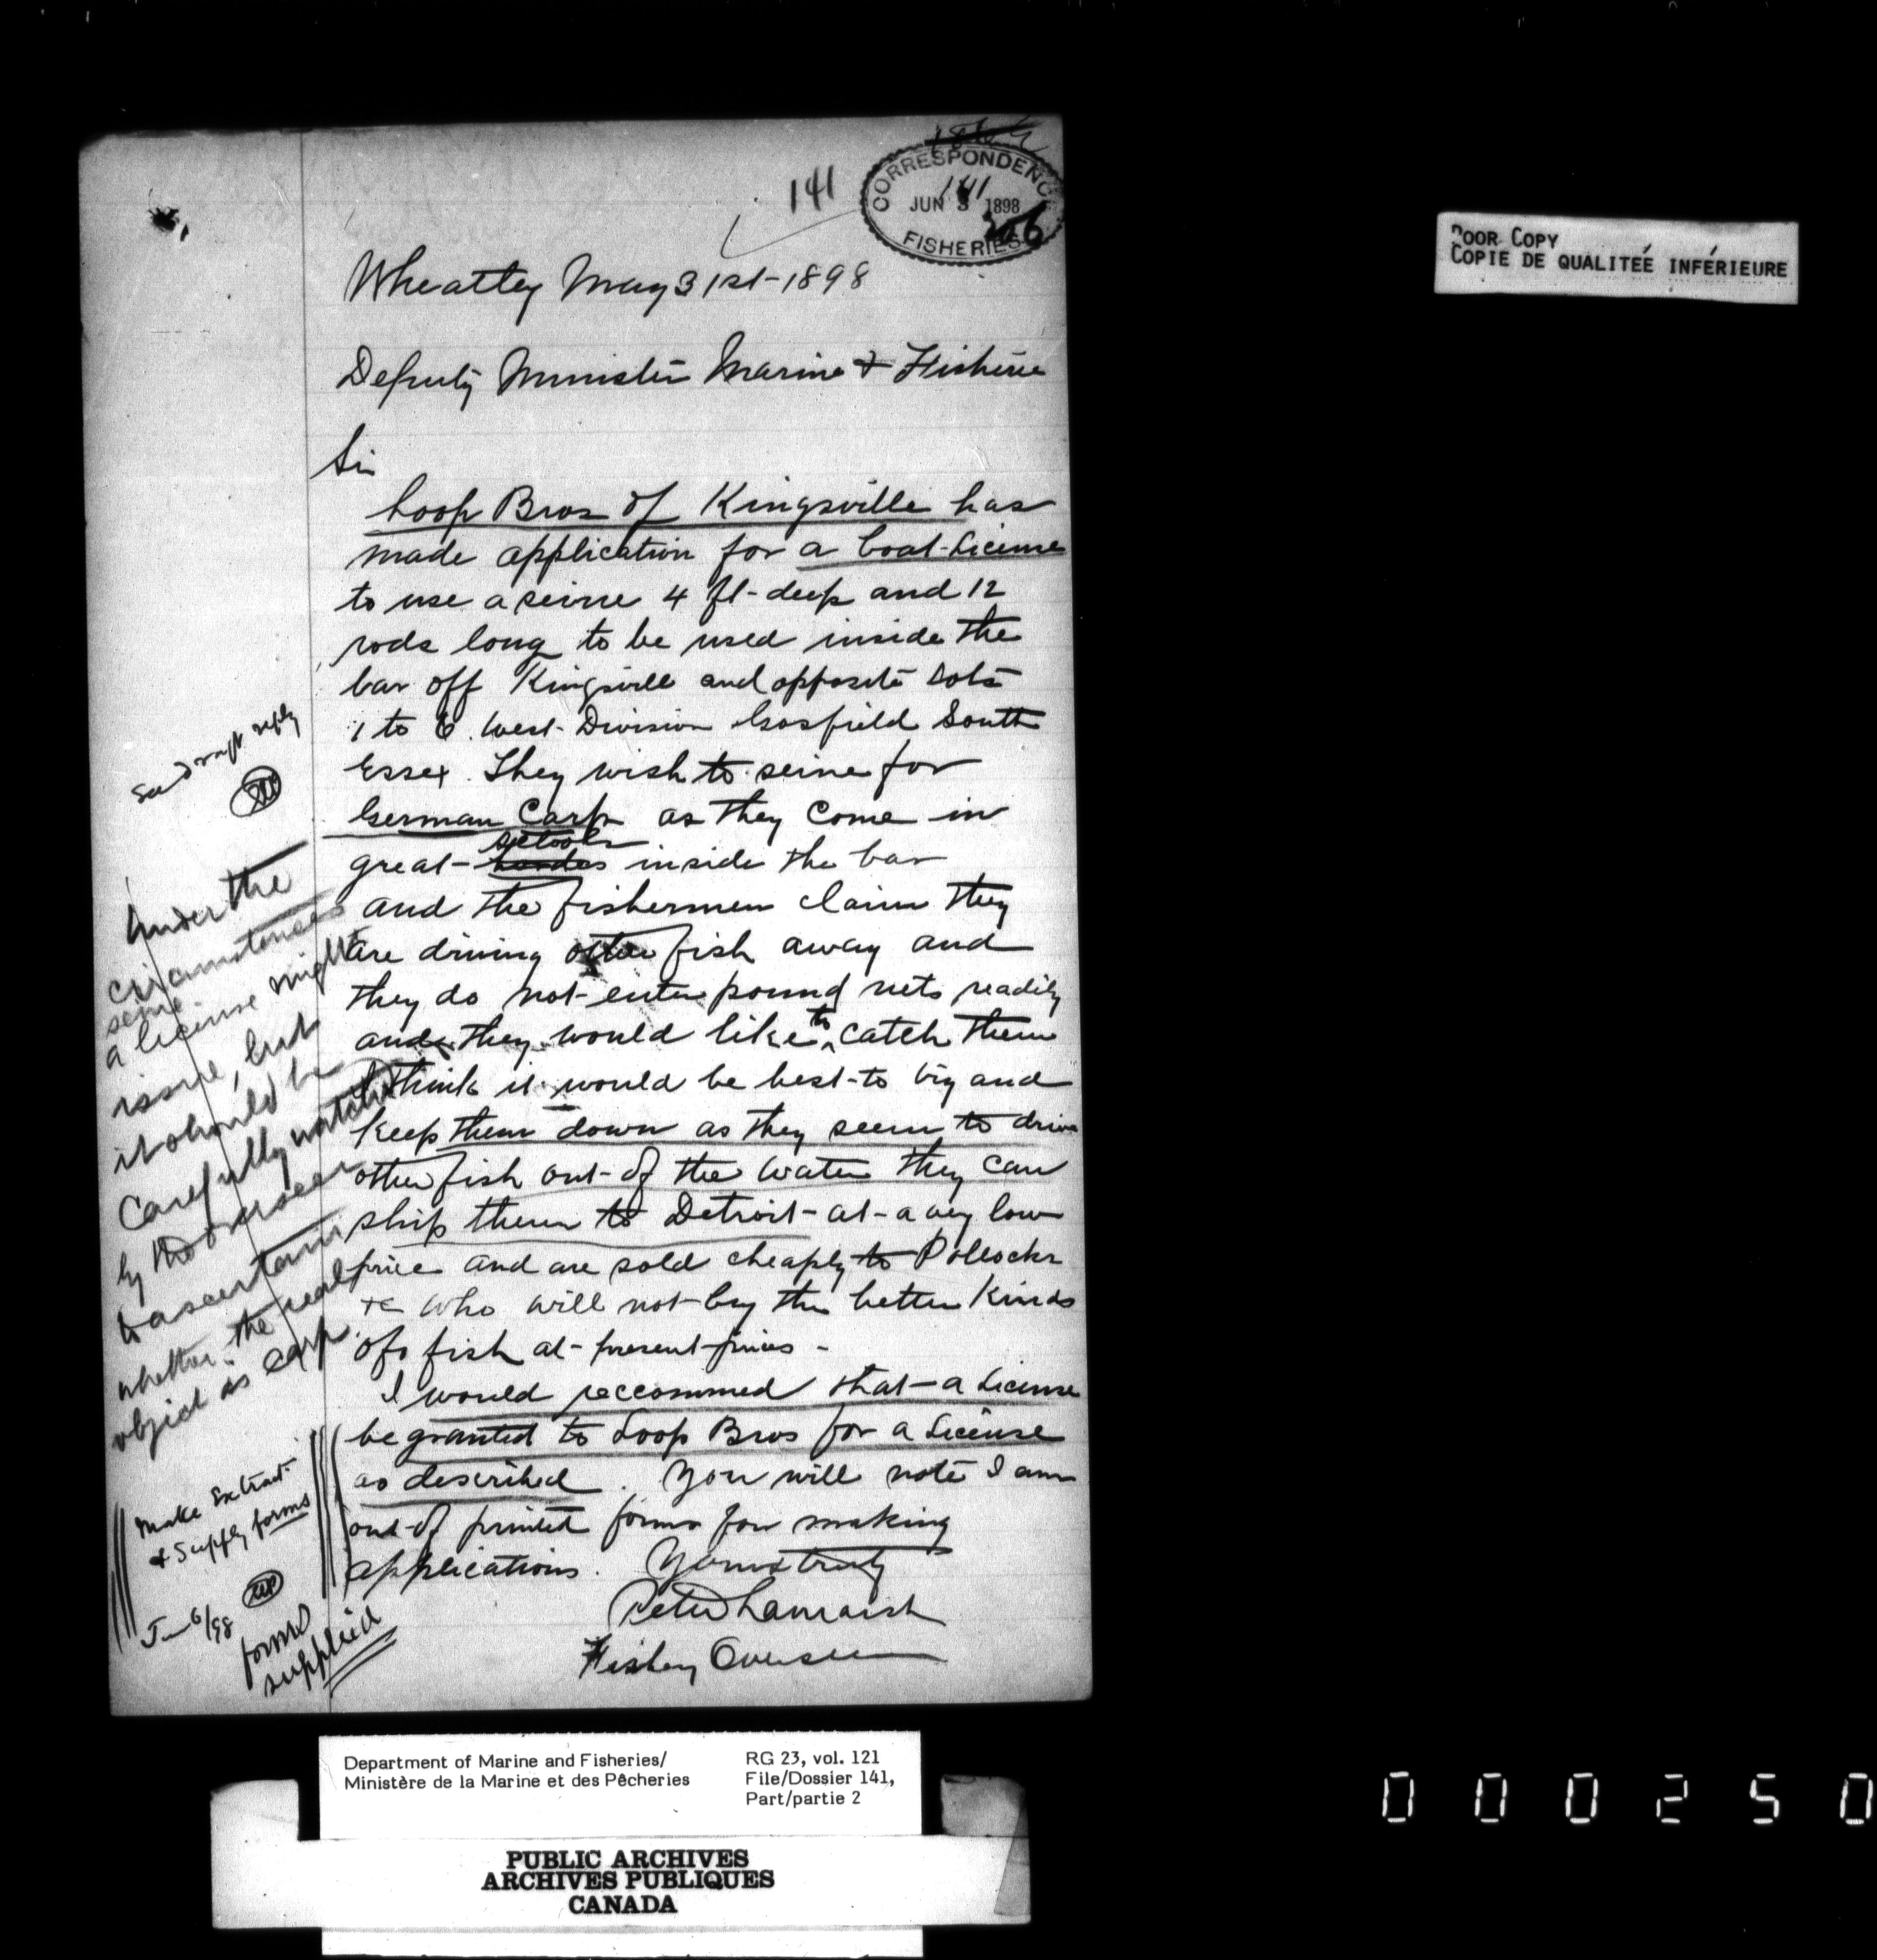 141
CORRESPONDENC
141
JUN 3 1898
FISHERIES
Wheatley May 31st-1898
Deputy Minister Marine & Fisherie
Sir
Loop Bros of Kingsville has
made application for a boat-License
to use a seine 4 ft-deep and 12
rods long to be used inside the
bar off Kingsville and opposite Lots
1 to 6. West-Division Gosfield South
Essex. They wish to seine for
German Carp as they come in
schools
great-hordes inside the bar
and the fishermen claim they
are driving other fish away and
they do not-enter pound nets readily
and they would like to catch them
I think it would be best-to try and
keep them down as they seem to drive
other fish out-of the water they can
ship them to Detroit-at-a very low
price and are sold cheaply to Pollocks
&c who will not-buy the better Kinds
of fish at-present-prices-
I would reccommed that-a License
be granted to Loop Bros for a License
as described. You will note I am
out-of printed forms for making
applications. Yours truly
Peter Lamarsh
Fishery Overseer
reply
Under the
circumstances
seine
a license might
issue, but
it should be
carefully watched
by the overseer
to ascertain
whether the real
object is carp
Make Extract
& supply forms
Jun 6/98
forms
supplied
POOR COPY
COPIE DE QUALITÉE INFÉRIEURE
Department of Marine and Fisheries/
Ministère de la Marine et des Pêcheries
RG 23, vol. 121
File/Dossier 141,
Part/partie 2
PUBLIC ARCHIVES
ARCHIVES PUBLIQUES
CANADA
000250